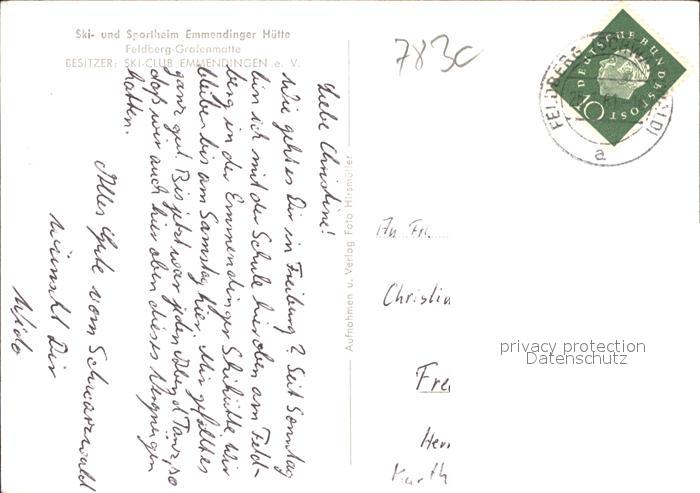 Ski- und Sportheim Emmendinger Hütte
Feldberg-Grafenmatte
BESITZER: SKI-CLUB EMMENDINGEN e. V.
783c
DEUTSCHE BUNDESPOST
10
FELDBERG (SCHWARZWALD)
a
Liebe Christine!
Wie geht es Dir in Freiburg? Seit Sonntag
bin ich mit der Schule hier oben am Feld-
berg in der Emmendinger Skihütte. Wir
bleiben bis am Samstag hier. Mir gefällt es
ganz gut. Bis jetzt war jeden Abend Tanz, so
daß wir auch hier oben dieses Vergnügen
hatten.
Alles Gute vom Schwarzwald
wünscht Dir
Aufnahmen u. Verlag Foto Hirsmüller
An Frl.
Christin
Frei
Herr
privacy protection
Datenschutz